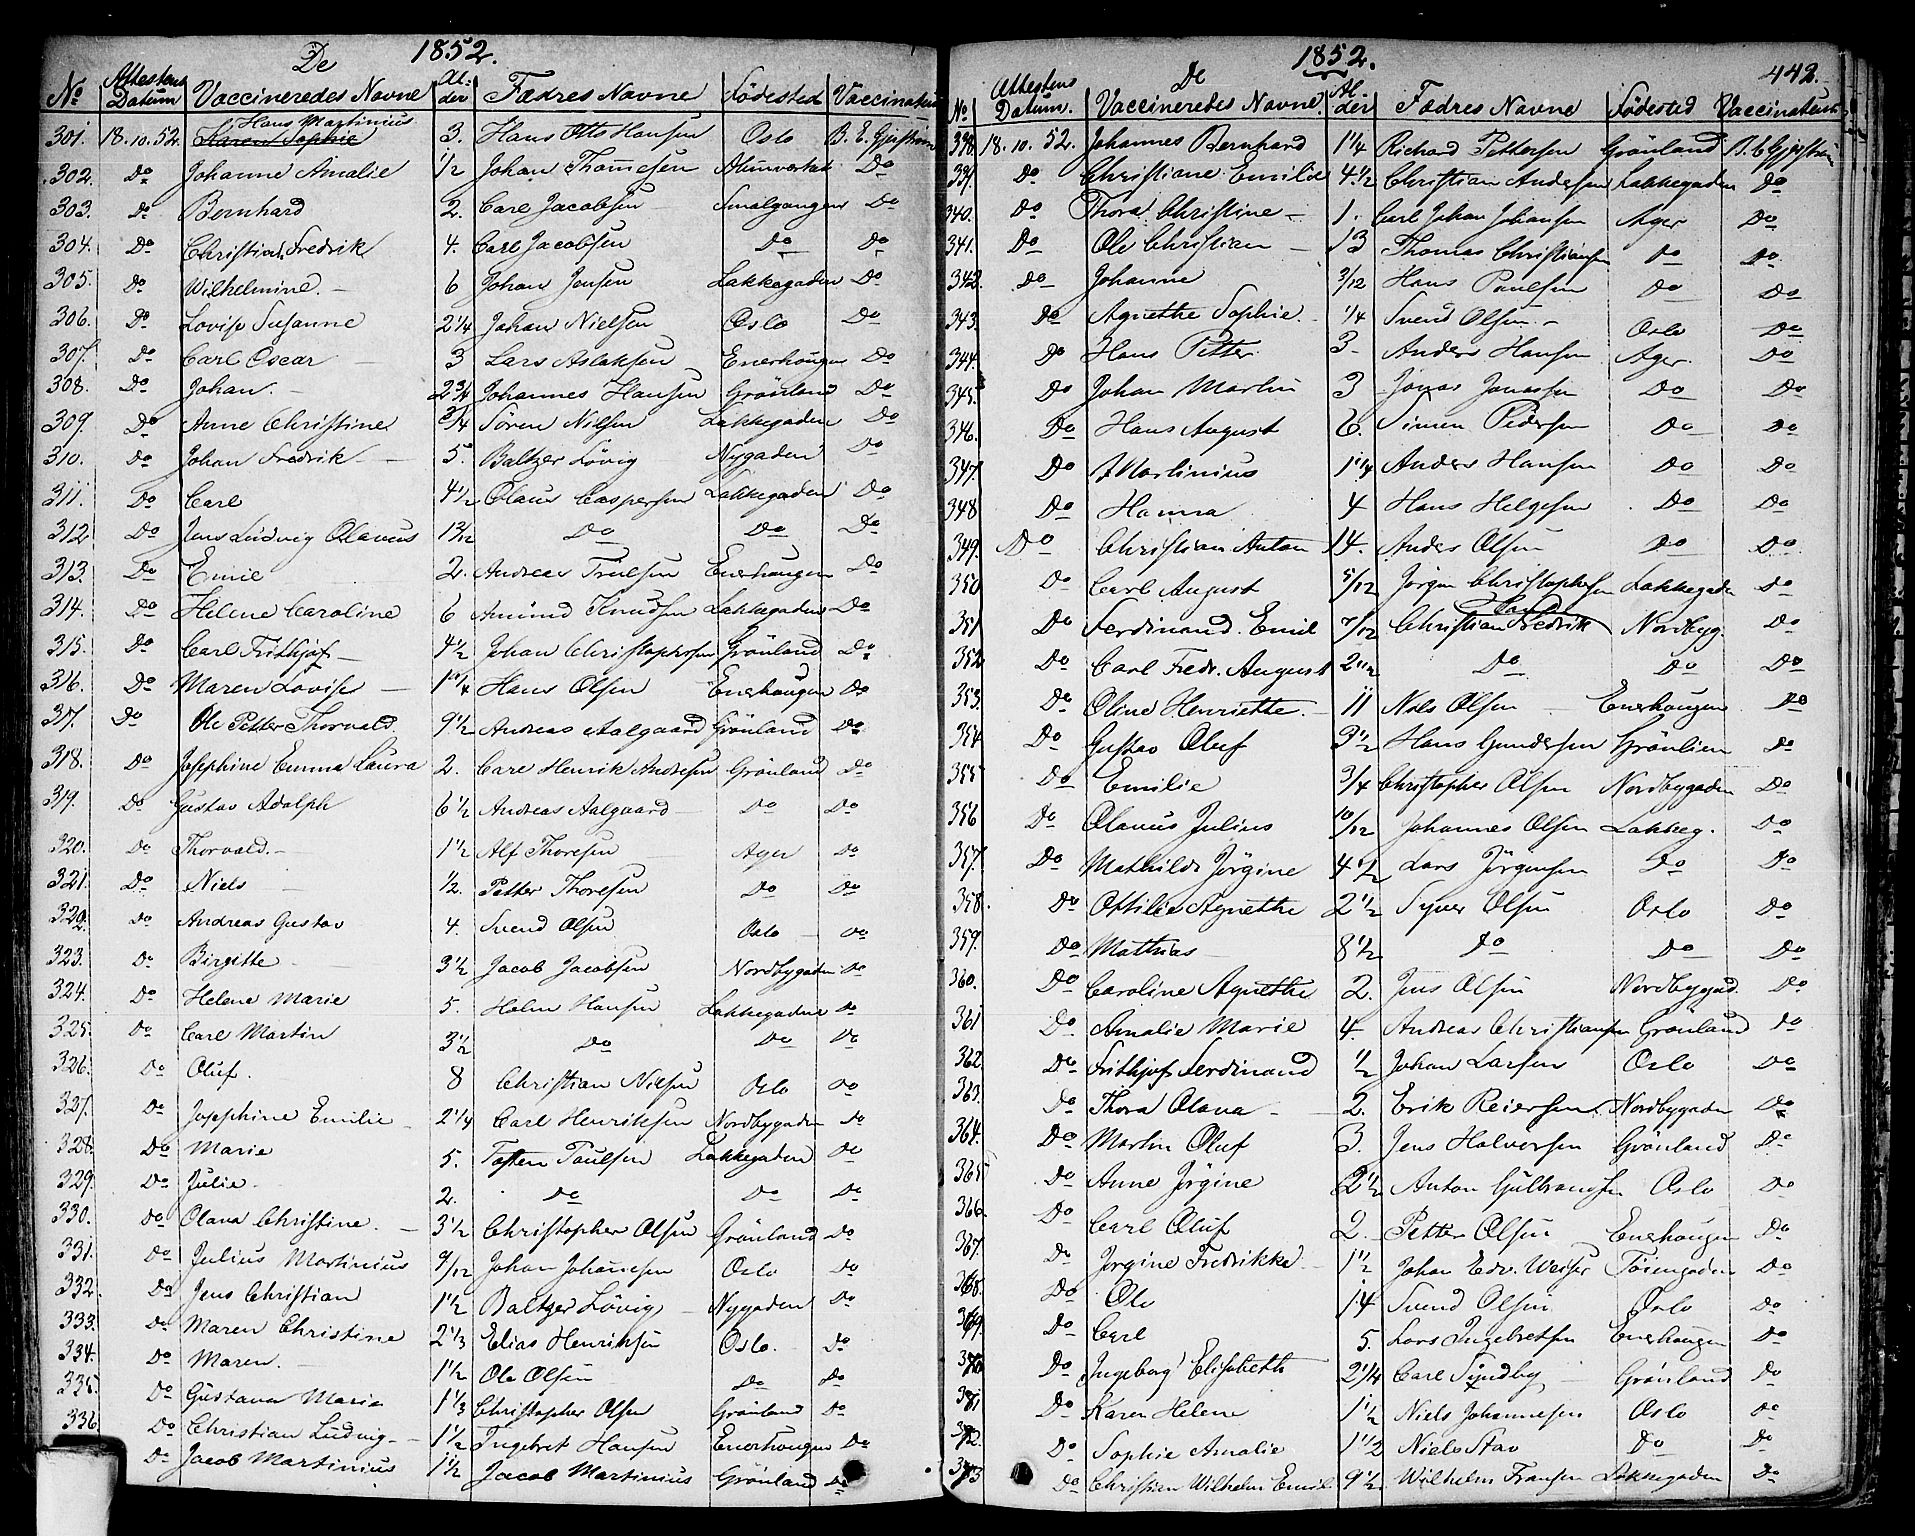 De 1852.
No Attestens Datum Vaccineredes Navne Alder Fædres Navne Födested Vaccinateur
301. 18.10.52. Hans Martinius 3. Hans Otto Hansen Oslo B. E. Gjeström
302. Do Johanne Amalie 1/2 Johan Thomesen Do
303. Do Bernhard 2. Carl Jacobsen Smalgangen Do
304. Do Christian Fredrik 4. Carl Jacobsen Do Do
305. Do Wilhelmine 6 Johan Jensen Lakkegaden Do
306. Do Lovise Susanne 2 1/4 Johan Nielsen Oslo Do
307. Do Carl Oscar 3 Lars Aslaksen Enerhaugen Do
308. Do Johan. 2 3/4 Johannes Hansen Grönland Do
309. Do Anne Christine 3/4 Sören Nilsen Lakkegaden Do
310. Do Johan Fredrik 5. Baltzer Lövig Nygaden Do
311. Do Carl 4 1/2 Olaus Caspersen Lakkegaden Do
312 Do Jens Ludvig Olavus 1 3/12 Do Do Do
313. Do Emil 2. Andreas Truelsen Enerhaugen Do
314. Do Helene Caroline 6 Amund Knudsen Lakkegaden Do
315. Do Carl Frithjof 4 1/2 Johan Christophersen Grönland Do
316. Do Maren Lovise 1 1/4 Hans Olsen Enerhaugen Do
317. Do Ole Petter Thorvald 9 1/2 Andreas Aalgaard Grönland Do
318. Do Josephine Emma Laura 2. Carl Henrik Andresen Grönland Do
319. Do Gustav Adolph 6 1/2 Andreas Aalgaard Do Do
320. Do Thorvald. 1 1/2 Alf Thoresen Ager Do
321. Do Niels 1/2. Petter Thoresen Do Do
322. Do Andreas Gustav 4. Svend Olsen Oslo Do
323. Do Birgitte 3 1/2 Jacob Jacobsen Nordbygaden Do
324. Do Helene Marie 5. Holm Hansen Lakkegaden Do
325. Do Carl Martin 3 1/2 Do Do Do
326. Do Oluf. 8 Christian Nilsen Oslo Do
327. Do Josephine Emilie 2 1/4 Carl Henriksen Nordbygaden Do
328. Do Marie 5. Tosten Paulsen Lakkegaden Do
329. Do Julie. 2. Do Do Do
330. Do Olava Christine. 3 1/2 Christopher Olsen Grönland Do
331. Do Julius Martinius 9/12 Johan Johannesen Oslo Do
332. Do Jens Christian 1 1/2 Baltzer Lövig Nygaden Do
333. Do Maren Christine 2 1/3 Elias Henriksen Oslo. Do
334. Do Maren. 1 1/2 Ole Olsen Do Do
335. Do Gustava Marie 1 1/3 Christopher Olsen Grönland Do
336 Do Christian Ludvig 1 1/2 Ingebret Hansen Enerhaugen Do
Do Jacob Martinius 1 1/2 Jacob Martinius Grönland Do
De 1852. 442.
No. Attestens Datum. Vaccineredes Navne Alder Fædres Navne Födested Vaccinateur
338 18.10.52. Johannes Bernhard 1 1/4 Richard Pettersen Grönland B. E. Gjeström
339. Do Christiane Emilie 4 1/2 Christian Andersen Lakkegaden Do
340. Do Thora Christine 1. Carl Johan Johansen Ager Do
341. Do Ole Christian 13 Thomas Christiansen Do Do
342. Do Johanne 3/12 Hans Paulsen Do Do
343. Do Agnethe Sophie. 1/4 Svend Olsen Oslo Do
344. Do Hans Petter 3 Anders Hansen Ager Do
345. Do Johan Martin 3 Jonas Jonassen Do Do
346. Do Hans August 6. Simen Pedersen Do Do
347. Do Martinius 1 1/4 Anders Hansen Do Do
348 Do Hanna 4 Hans Helgesen Do Do
349. Do Christian Anton 14. Anders Olsen Do Do
350 Do Carl August 5/12 Jörgen Christophersen Lakkegaden Do
351 Do Ferdinand Emil 7/12 Christian Fredrik Nordbyg. Do
352 Do Carl Fredr. August 2 11/12 Do Do Do
353. Do Oline Henriette. 11 Nils Olsen Enerhaugen Do
354 Do Gustav Oluf 3 1/2 Hans Gundersen Grönlien Do
355 Do Emilie 3/4 Christopher Olsen Nordbygaden Do
356 Do Olavus Julius 10/12 Johannes Olsen Lakkeg. Do
357. Do Mathilde Jörgine 4 1/2 Lars Jörgensen Do Do
358. Do Ottilie Agnethe 2 1/2 Syver Olsen Oslo Do
359. Do Mathias 8 1/2 Do Do Do
360. Do Caroline Agnethe 2. Jens Olsen Nordbygad. Do
361 Do Amalie Marie 4. Andreas Christiansen Grönland Do
362. Do Frithjof Ferdinand 1/2 Johan Larsen Oslo Do
363. Do Thora Olava 2. Erik Reiersen Nordbygaden Do
364. Do Martin Oluf 3. Jens Halvorsen Grönland Do
365 Do Anne Jörgine 2 1/2 Anton Gulbrandsen Oslo Do
366. Do Carl Oluf 2. Petter Olsen Enerhaugen Do
367. Do Jörgine Fredrikke 1 1/2 Johan Edv. Weiser Töiengaden Do
368. Do Ole 14 Svend Olsen Oslo Do
369. Do Carl 5. Lars Ingebretsen Enerhaugen Do
370. Do Ingeborg Elisabeth 2 1/4 Carl Grönland Do
371 Do Karen Helene 1 1/2 Niels Johannesen Oslo Do
372. Do Sophie Amalie 1 1/2 Niels Stav Do Do
373 Do Christian Wilhelm Emil 9 1/2 Wilhelm Fransen Lakkegaden Do